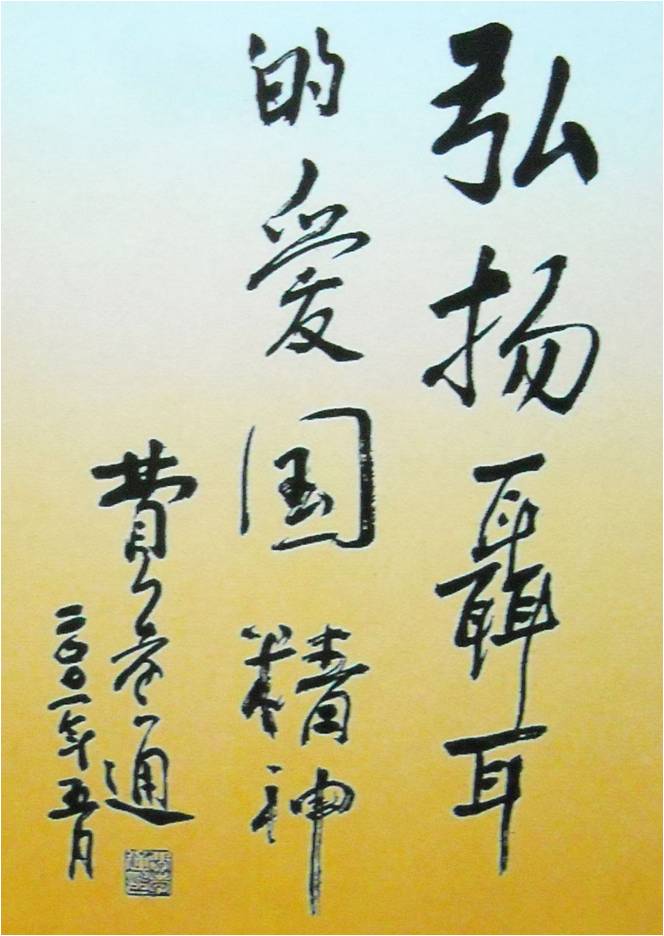 弘扬聶耳
的爱国精神
費孝通
二〇〇一年五月